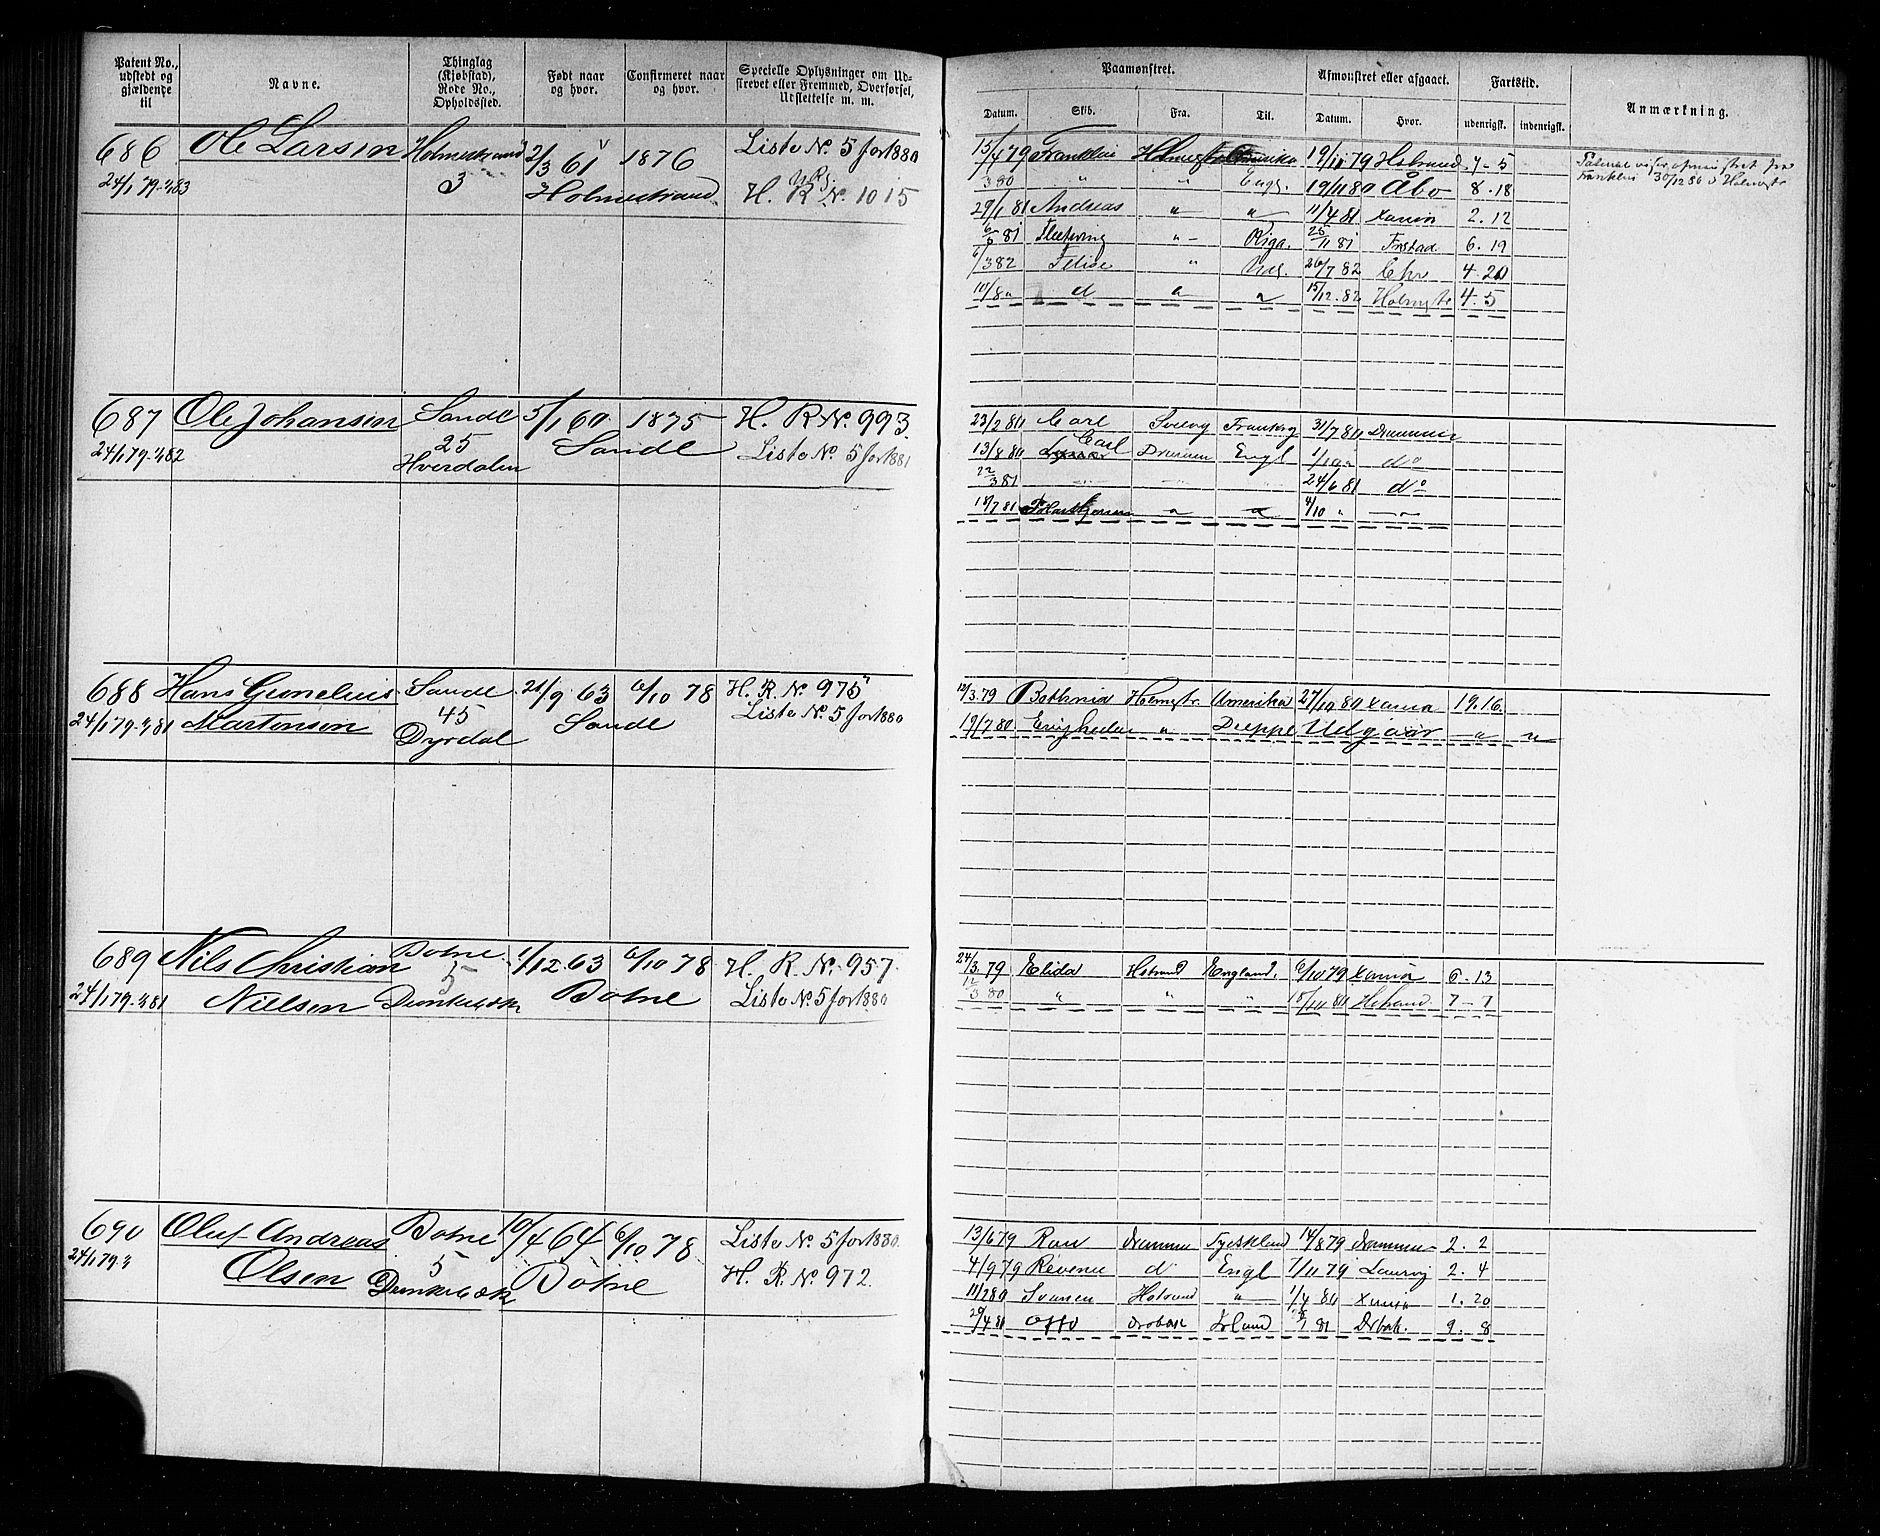 Patent No., udstedt og gjældende til
Navne.
Thinglag (Kjøbstad), Rode No., Opholdssted.
Født naar og hvor.
Confirmeret naar og hvor.
Specielle Oplysninger om Udskrevet eller Fremmed, Overførsel, Udslettelse m. m.
Paamønstret.
Datum.
Skib.
Fra.
Til.
Afmønstret eller afgaaet.
Datum.
Hvor.
Fartstid.
udenrigsk.
indenrigsk.
Anmærkning.
686 Ole Larsen Holmestrand 2/3 61 1876 Liste No. 5 for 1880
24/1 79-3/83 3 Holmestrand H. R. No. 1015
15/4 79 Franklin Holmestr Amerika 19/11 79 Hstrand 7-5
3 80 " " Engl. 19/11 80 Åbo 8.18
29/1 81 Andreas " " 11/4 81 Xania 2.12
81 " Riga. 25/11 81 Frstad 6.19
3 82 " 26/7 82 Chr 4.20
10/8 " d " " 15/12 82 Holmstr 4.5
Franklin 30/12 80 Holmestr
687 Ole Johansen Sande 5/1 60 1875 H. R No. 993.
24/1 79-3/82 25 Sande Liste No. 5 for 1881
Hverdalen
23/2 80 Carl Svelvig 31/7 80 Drammen
13/8 80 Carl Drammen Engl 1/10 " do
22/3 81 24/6 81 do
18/7 81 " " 4/10 " "
688 Hans Gunelius Sande 21/9 63 6/10 78 H. R. No. 975
24/1 79-3/81 Martinsen 45 Sande Liste No. 5 for 1880
Dyrdal
12/3 79 Bethania Holmstr. Amerika 27/10 80 Xania 19.16.
19/7 80 " Dieppe Udgaar " "
689 Nils Christian Botne 1/12 63 6/10 78 H. R. No. 957.
24/1 79-3/81 Nielsen 5 Botne Liste No. 5 for 1880
24/3 79 Elida Hstrand England. 6/10 79 Xania 6.13
12/3 80 " " " 15/10 80 Hstrand. 7-7
690 Oluf Andreas Botne 10/4 64 6/10 78 Liste No. 5 for 1880.
24/1 79-3 Olsen 5 Botne H. R. No. 972.
13/6 79 Ran Drammen Tyskland 14/8 79 Drammen 2.2
4/9 79 Revenu d Engl 7/11 79 Laurvig 2.4
11/2 80 Svanen Hstrand " 1/4 80 Xania 1.20
20/4 81 Otto Drobak 81 Drbak. 9.8